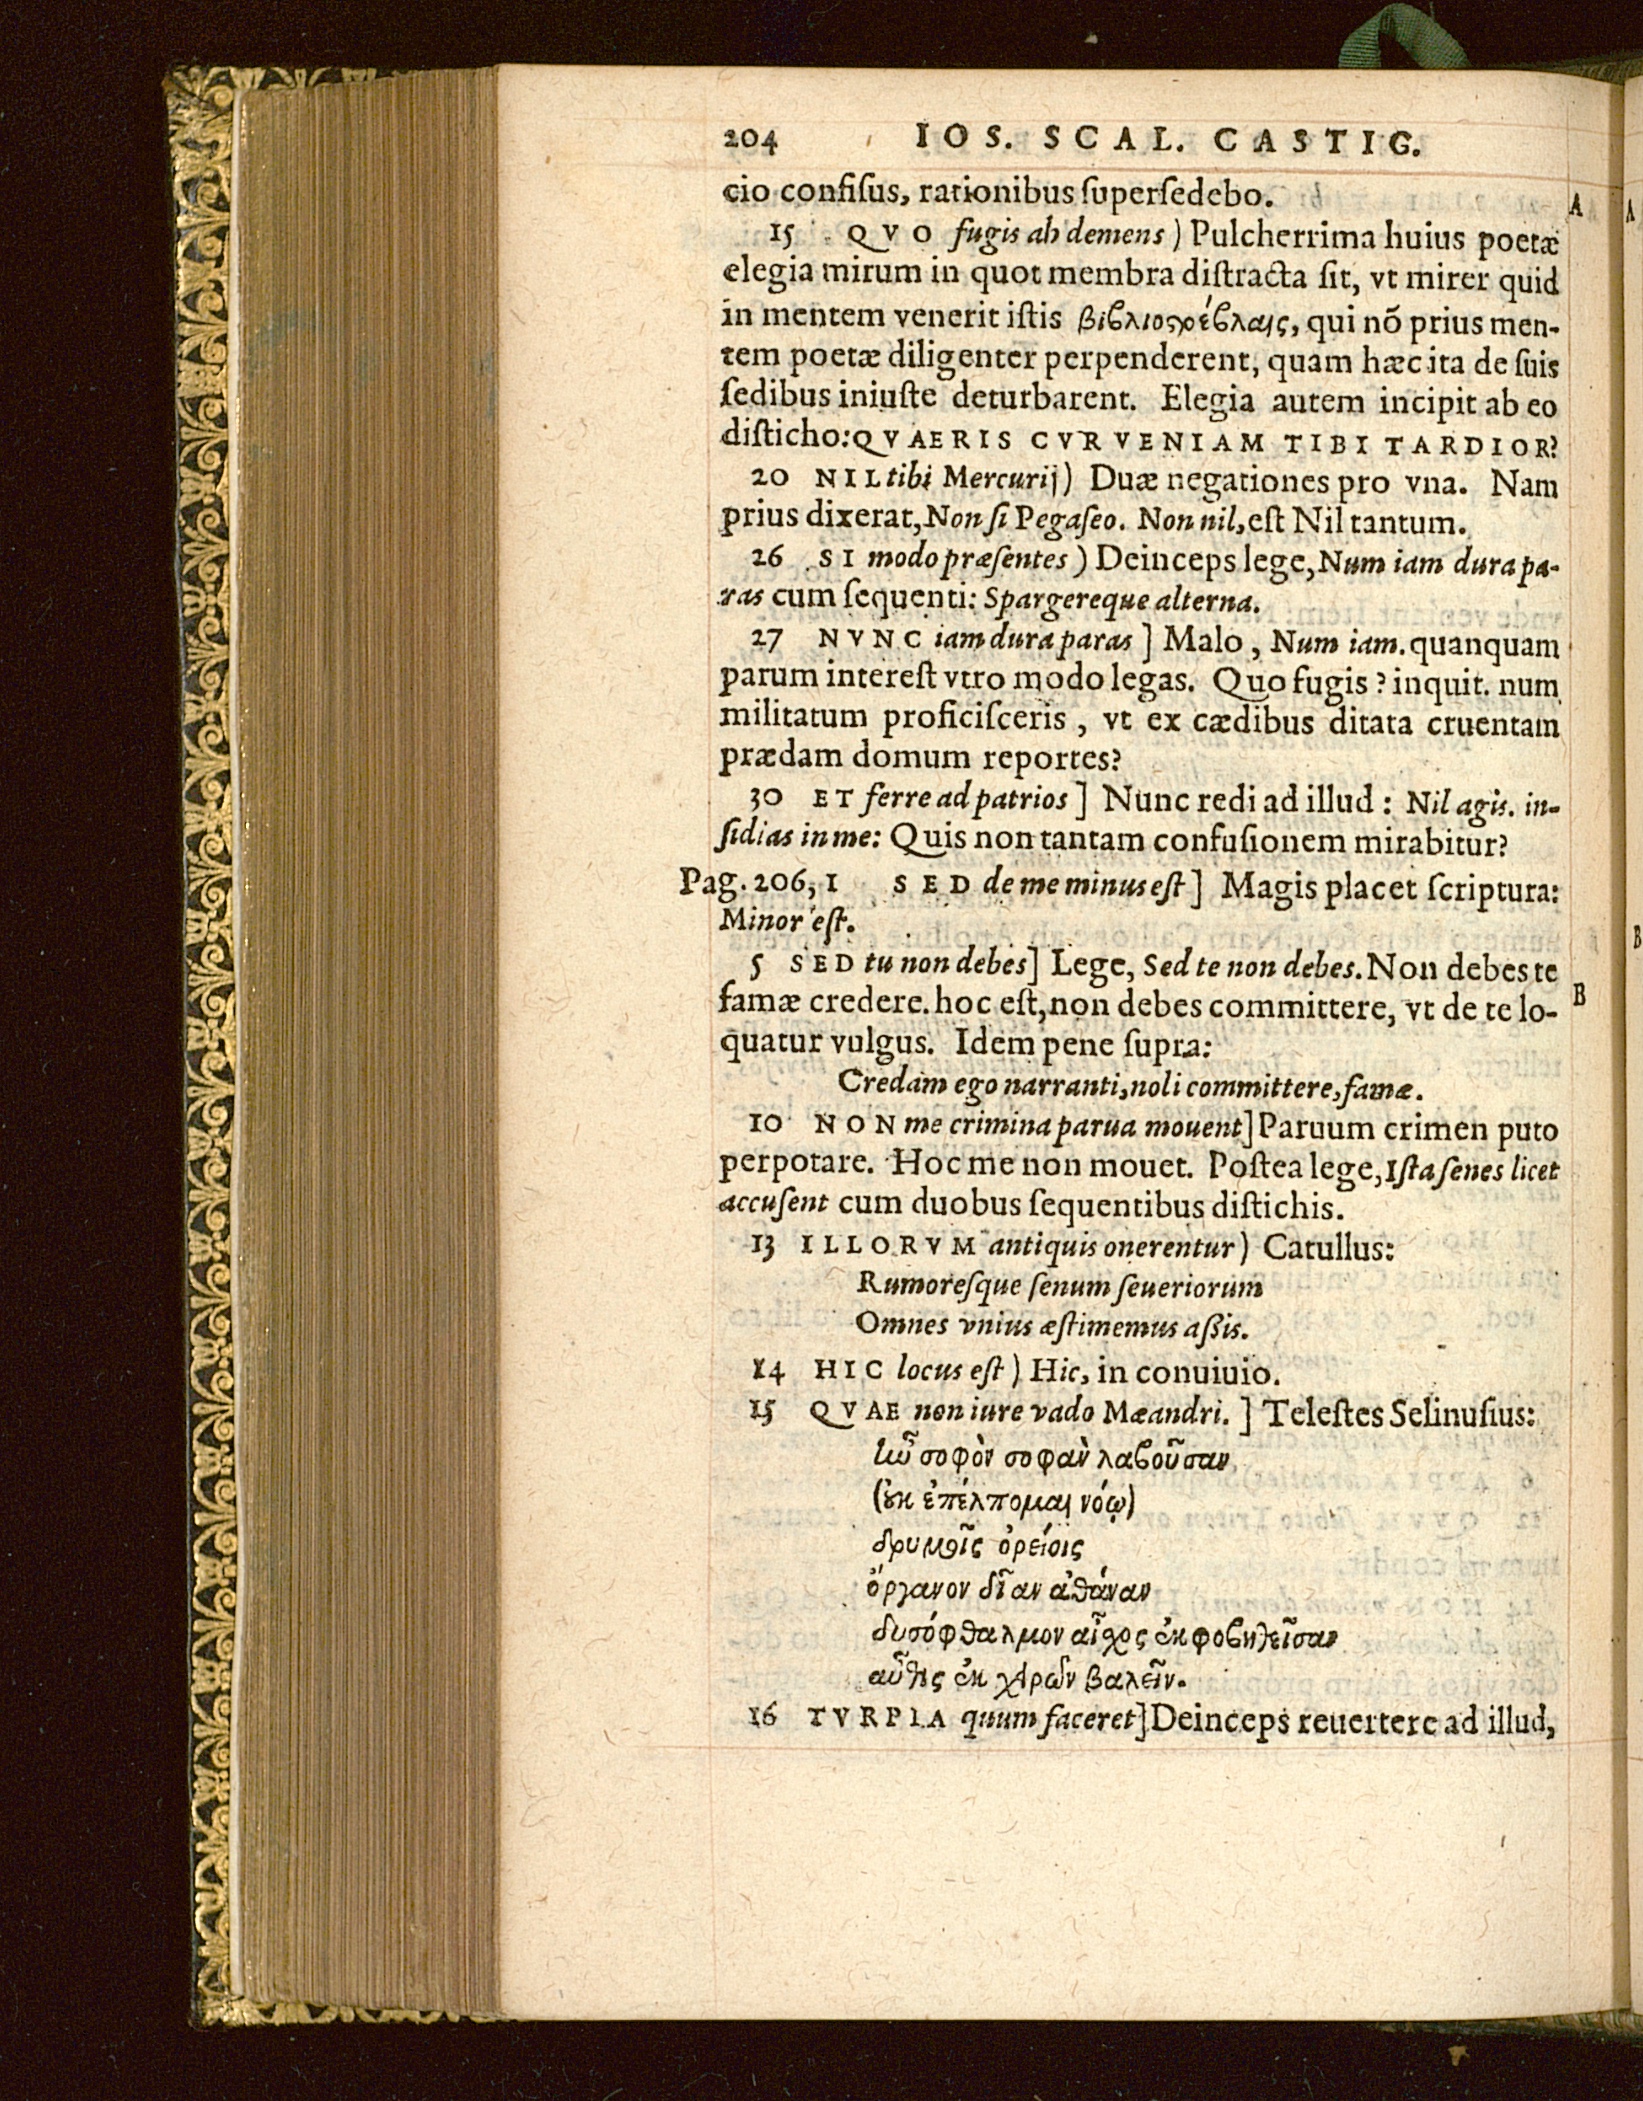 204 IOS. SCAL. CASTIG.
cio confiſus, rationibus ſuperſedebo.
A
A
15 QVO fugis ah demens) Pulcherrima huius poetæ
elegia mirum in quot membra diſtracta ſit, vt mirer quid
in mentem venerit iſtis qui nõ prius men-
tem poetæ diligenter perpenderent, quam hæc ita de ſuis
ſedibus iniuſte deturbarent. Elegia autem incipit ab eo
diſticho: QVAERIS CVR VENIAM TIBI TARDIOR?
20 NIL tibi Mercurij) Duæ negationes pro vna. Nam
prius dixerat, Non ſi Pegaſeo. Non nil, eſt Nil tantum.
26 SI modo præſentes) Deinceps lege, Num iam dura pa-
ras cum ſequenti: Spargereque alterna.
27 NVNC iam dura paras] Malo, Num iam. quanquam
parum intereſt vtro modo legas. Quo fugis? inquit. num
militatum proficiſceris, vt ex cædibus ditata cruentam
prædam domum reportes?
30 ET ferre ad patrios] Nunc redi ad illud: Nil agis. in-
ſidias in me: Quis non tantam confuſionem mirabitur?
Pag. 206, 1 SED de me minus eſt] Magis placet ſcriptura:
Minor eſt.
B
5 SED tu non debes] Lege, Sed te non debes. Non debes te
famæ credere. hoc eſt, non debes committere, vt de te lo-
B
quatur vulgus. Idem pene ſupra:
Credam ego narranti, noli committere, famæ.
10 NON me crimina parua mouent] Paruum crimen puto
perpotare. Hoc me non mouet. Poſtea lege, Iſta ſenes licet
accuſent cum duobus ſequentibus diſtichis.
13 ILLORVM antiquis onerentur) Catullus:
Rumoreſque ſenum ſeueriorum
Omnes vnius æſtimemus aßis.
14 HIC locus eſt) Hic, in conuiuio.
15 QVAE non iure vado Mæandri.] Teleſtes Selinuſius:
σοφὸν σοφὰν λαβοῦσαν
(οὐκ ἐπέλπομαι νόῳ)
δρυμοῖς ὀρείοις
ὄργανον δῖαν ἀθάναν
δυσόφθαλμον αἶσχος ἐκφοβηθεῖσαν
αὖθις ἐκ χερῶν βαλεῖν.
16 TVRPIA quum faceret] Deinceps reuertere ad illud,